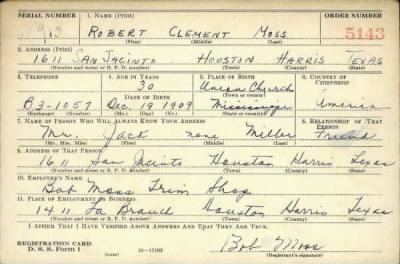 SERIAL NUMBER 1. NAME (Print) ORDER NUMBER
ROBERT CLEMENT MOSS 5143
(First) (Middle) (Last)
2. ADDRESS (Print)
1611 SAN JACINTO HOUSTON HARRIS TEXAS
(Number and street or R. F. D. number) (Town) (County) (State)
3. TELEPHONE 4. AGE IN YEARS 5. PLACE OF BIRTH 6. COUNTRY OF CITIZENSHIP
30 Union Church
DATE OF BIRTH (Town or county)
B3-1057 Dec. 19 1909 Mississippi America
(Exchange) (Number) (Mo.) (Day) (Yr.) (State or country)
7. NAME OF PERSON WHO WILL ALWAYS KNOW YOUR ADDRESS 8. RELATIONSHIP OF THAT PERSON
Mr. Jack none Miller Friend
(Mr., Mrs., Miss) (First) (Middle) (Last)
9. ADDRESS OF THAT PERSON
1611 San Jacinto Houston Harris Texas
(Number and street or R. F. D. number) (Town) (County) (State)
10. EMPLOYER'S NAME
Bob Moss Trim Shop
11. PLACE OF EMPLOYMENT OR BUSINESS
1411 La Branch Houston Harris Texas
(Number and street or R. F. D. number) (Town) (County) (State)
I AFFIRM THAT I HAVE VERIFIED ABOVE ANSWERS AND THAT THEY ARE TRUE.
REGISTRATION CARD
D. S. S. Form 1 (over) Bob Moss
(Registrant's signature)